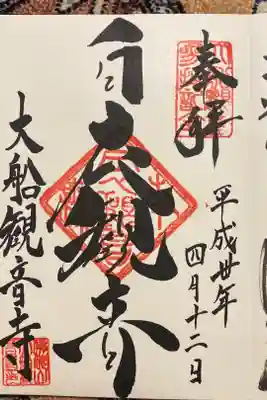 奉拝
平成卅年
四月十二日
白衣大観音
大船観音寺